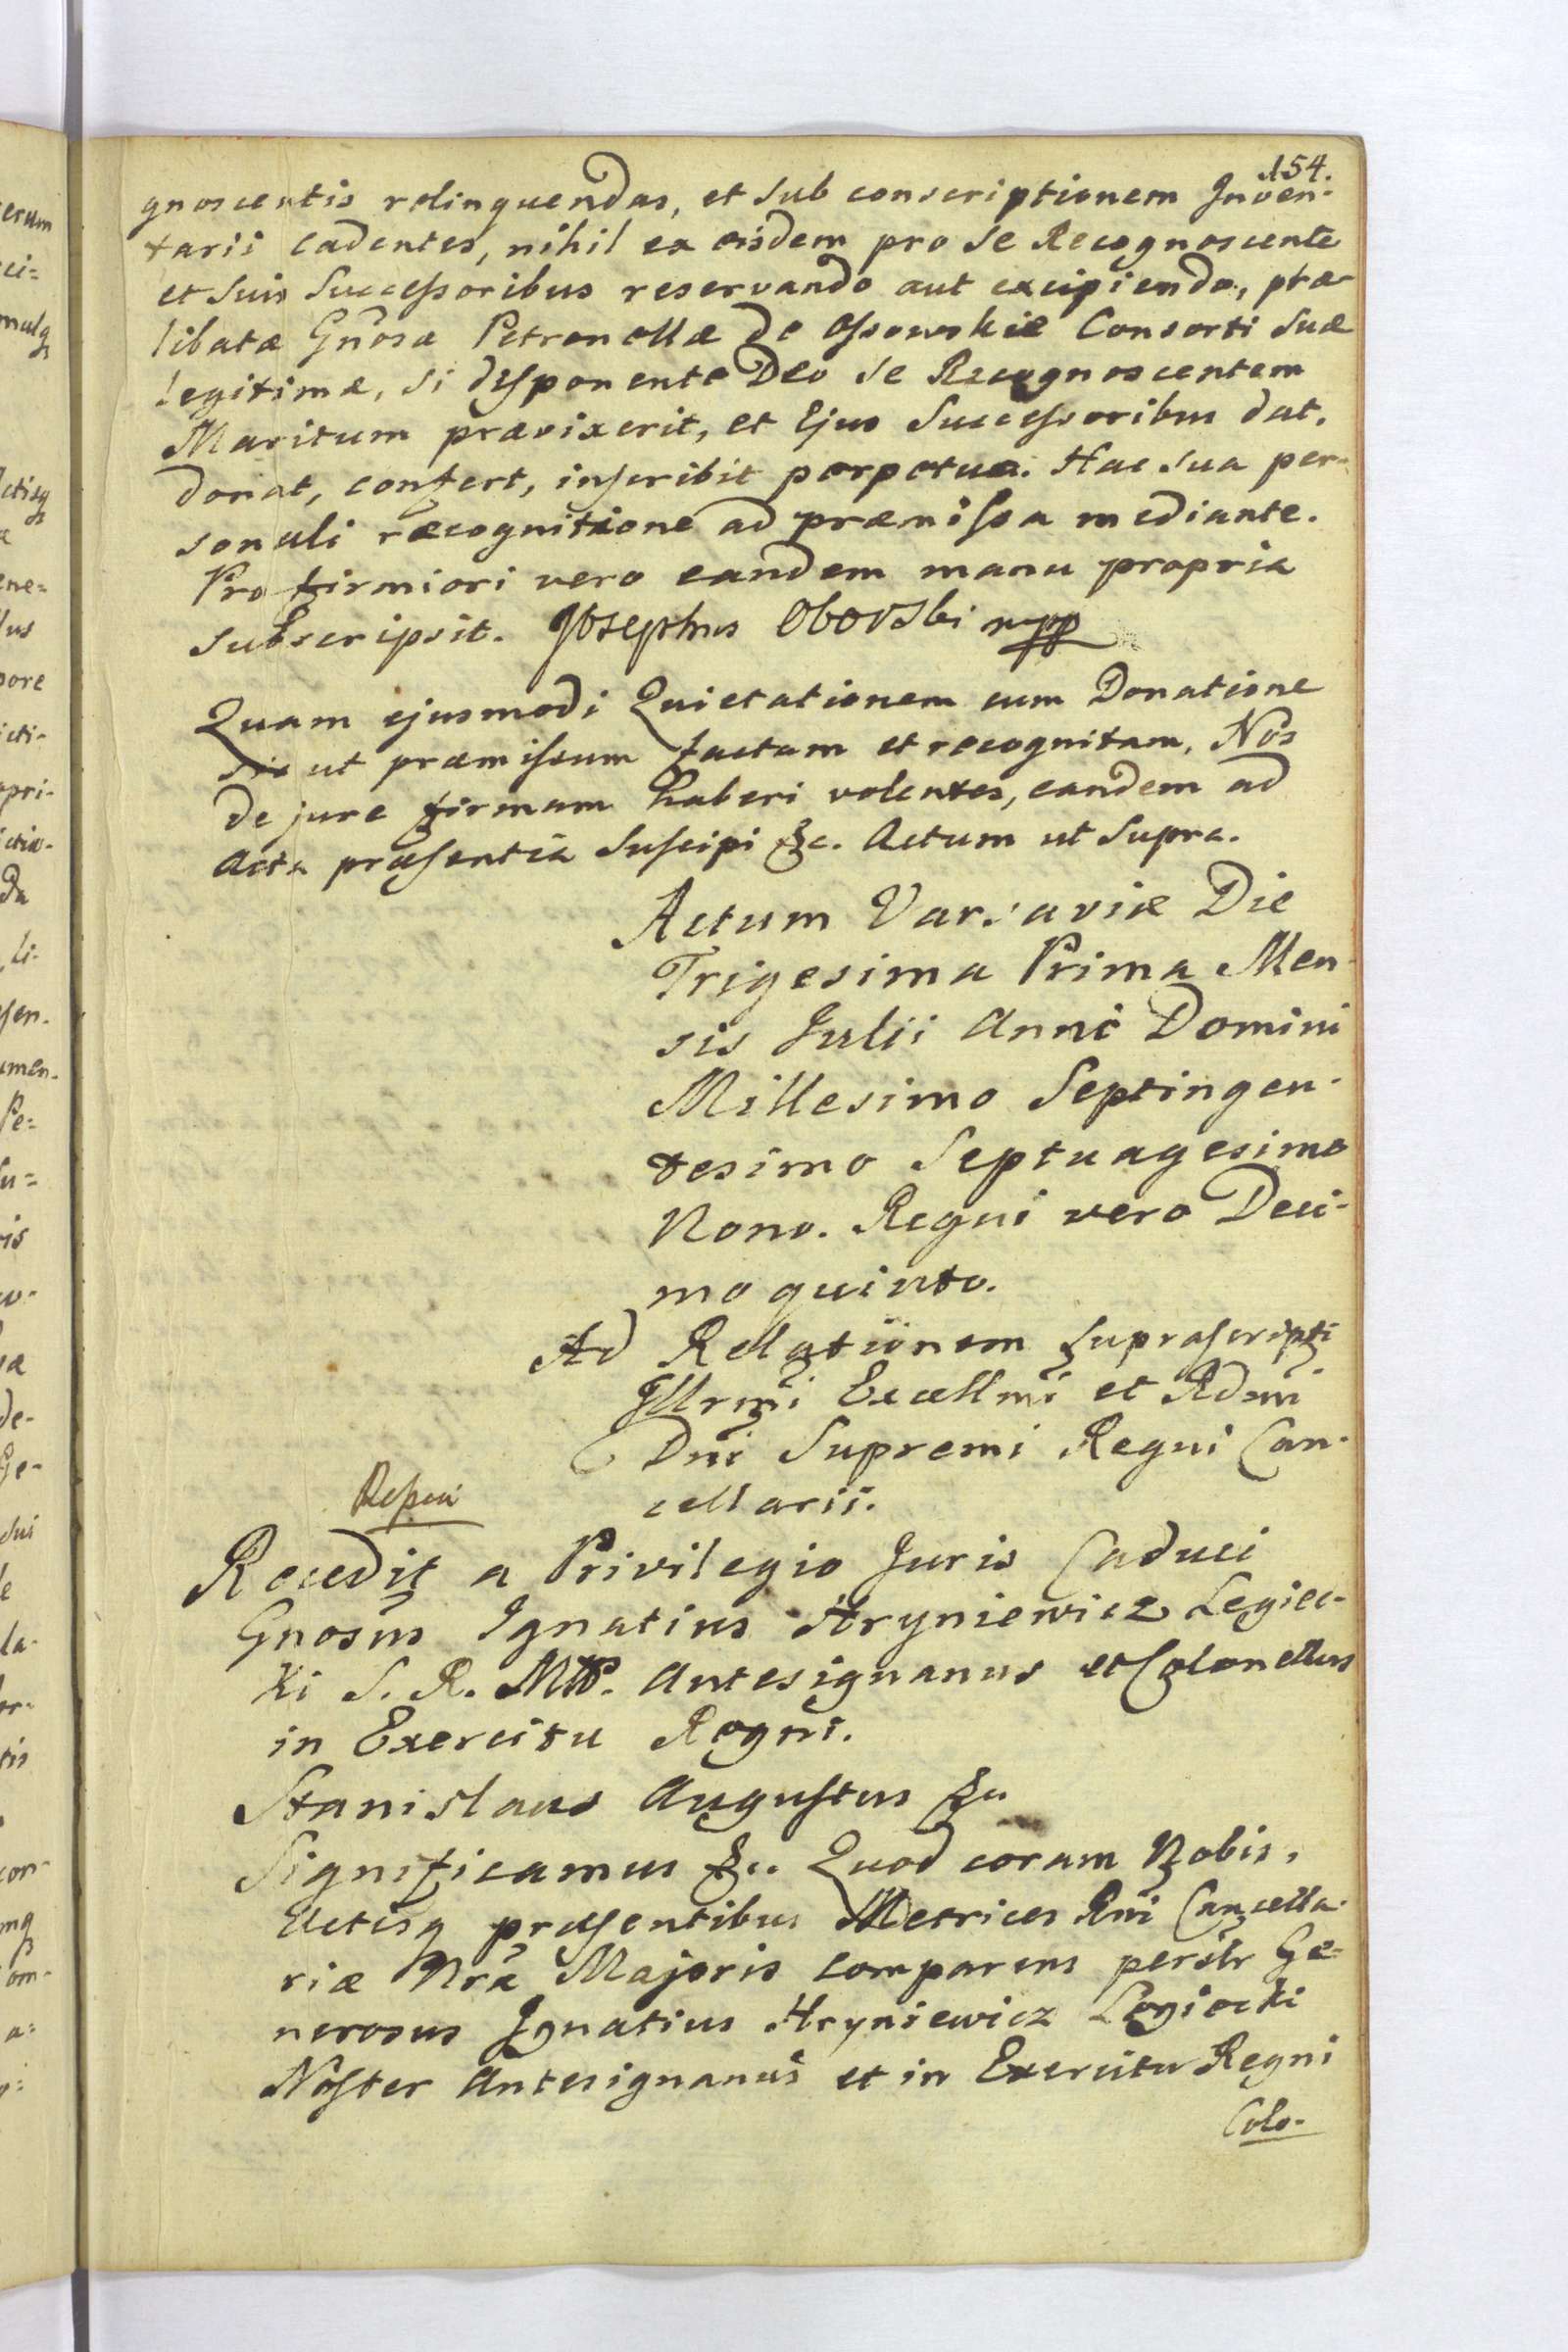 154.
gnoscentis relinquendas, et sub conscriptionem Inven-
tarii cadentes, nihil ex eisdem pro se Recognoscente
et suis Successoribus reservando aut excipiendo, præ-
libatæ Gnosæ Petronellæ de Ossowskie Consorti suæ
legitimæ, si disponente Deo se Recognoscentem
Maritum prævixerit, et Ejus Successoribus dat,
donat, confert, inscribit perpetuo. Hac sua per-
sonali recognitione ad præmissa mediante.
Pro firmiori vero eandem manu propria
subscripsit. Josephus Oborski mpp
Quam ejusmodi Quietationem cum Donatione
sic ut præmissum factam et recognitam, Nos
de jure firmam haberi volentes, eandem ad
Acta præsentia suscipi &c. Actum ut supra.
Actum Varsaviæ Die
Trigesima Prima Men
sis Julii Anni Domini
Millesimo Septingen-
tesimo Septuagesimo
Nono. Regni vero Deci-
mo quinto.
Ad Relationem suprascripti
Illrmi Excellmi et Rdmi
Dni Supremi Regni Can-
cellarii.
Recedit a Privilegio Juris Caduci
Gnosus Ignatius Hryniewicz Legiec-
ki S. R. Mtt. Antesignanus et Colonellus
in Exercitu Regni.
Stanislaus Augustus &c
Significamus &c. Quod coram Nobis,
Actisq præsentibus Metrices Rni Cancella-
riæ Nræ Majoris comparens persltr Ge-
nerosus Ignatius Hryniewicz Legiecki
Noster Antesignanus et in Exercitu Regni
Colo-